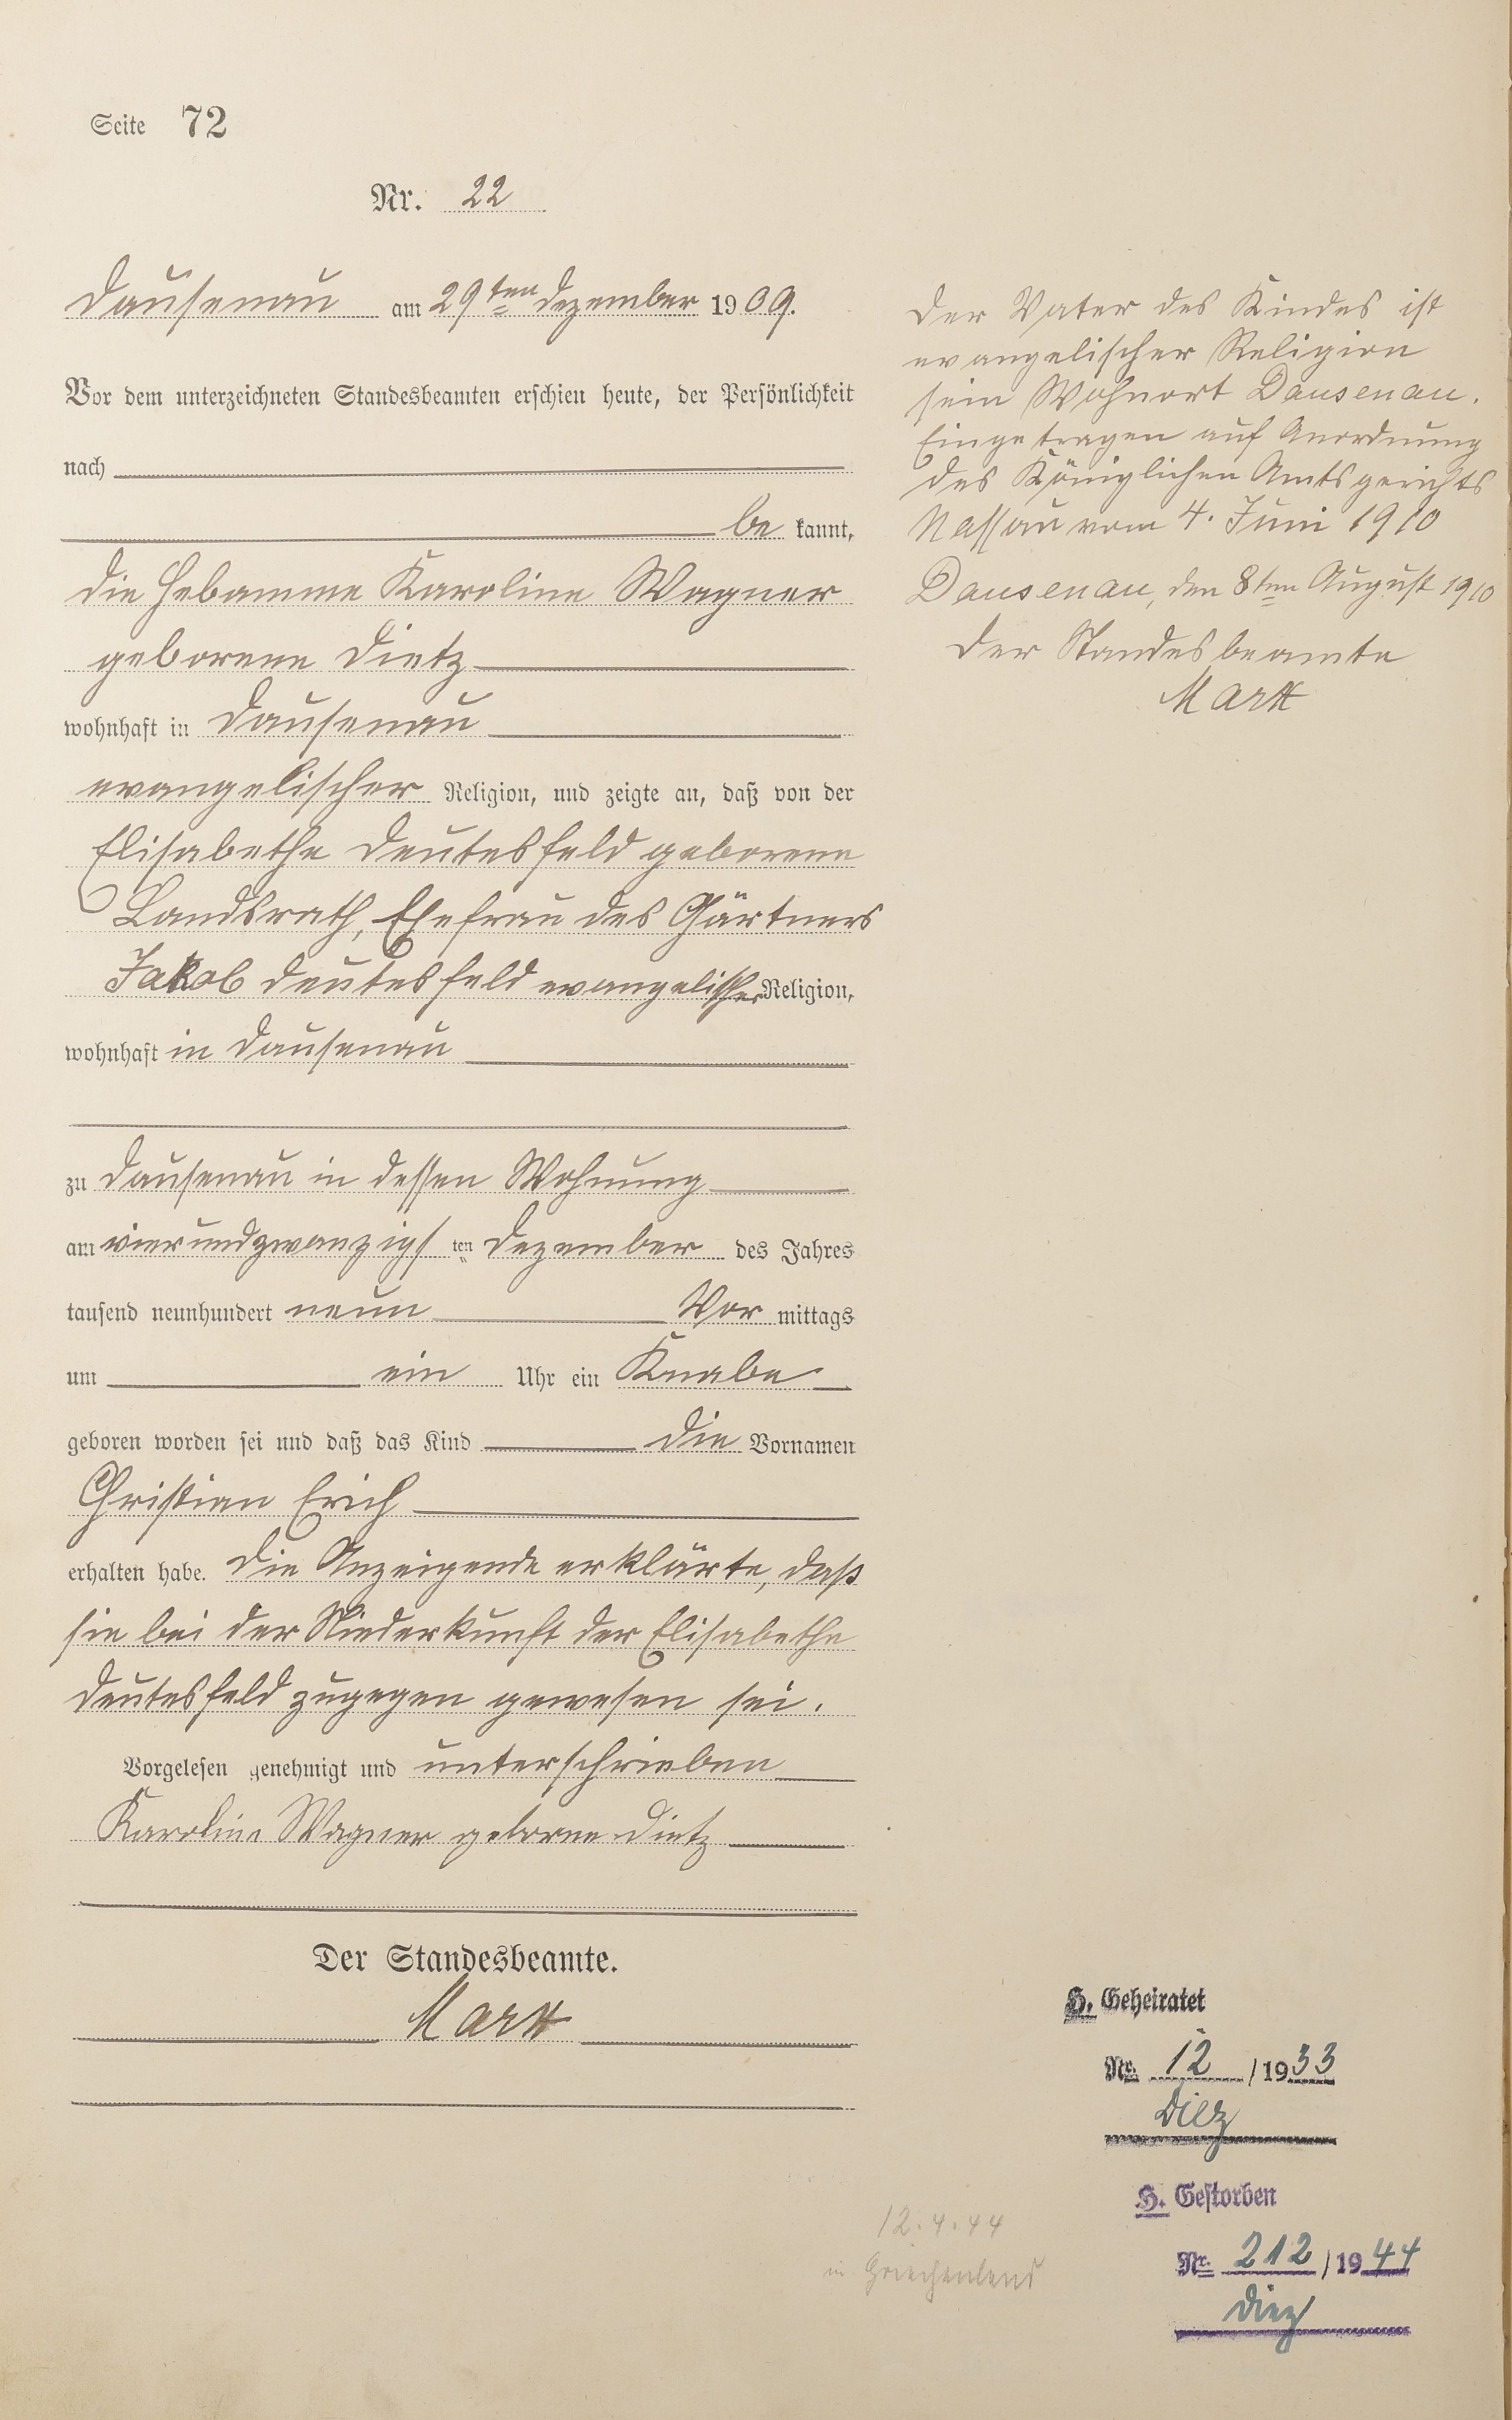 Seite 72
Nr. 22
Dausenau am 29ten Dezember 1909.
Vor dem unterzeichneten Standesbeamten erschien heute, der Persönlichkeit
nach
be kannt,
die Hebamme Karoline Wagner
geborene Dietz
wohnhaft in Dausenau
evangelischer Religion, und zeigte an, daß von der
Elisabethe Deutesfeld geborene
Landsrath, Ehefrau des Gärtners
Jakob Deutesfeld evangelischer Religion,
wohnhaft in Dausenau
zu Dausenau in dessen Wohnung
am vierundzwanzigsten Dezember des Jahres
tausend neunhundert neun Vor mittags
um ein Uhr ein Knabe
geboren worden sei und daß das Kind die Vornamen
Christian Erich
erhalten habe. Die Anzeigende erklärte, daß
sie bei der Niederkunft der Elisabethe
Deutesfeld zugegen gewesen sei.
Vorgelesen genehmigt und unterschrieben
Karoline Wagner geborne Dietz
Der Standesbeamte.
Der Vater des Kindes ist
evangelischer Religion
sein Wohnort Dausenau.
Eingetragen auf Anordnung
des Königlichen Amtsgerichts
Nassau vom 4. Juni 1910
Dausenau, den 8ten August 1910
Der Standesbeamte
H. Geheiratet
Nr. 12 / 1933
Diez
H. Gestorben
Nr. 212 / 1944
Diez
12.4.44
in Griechenland